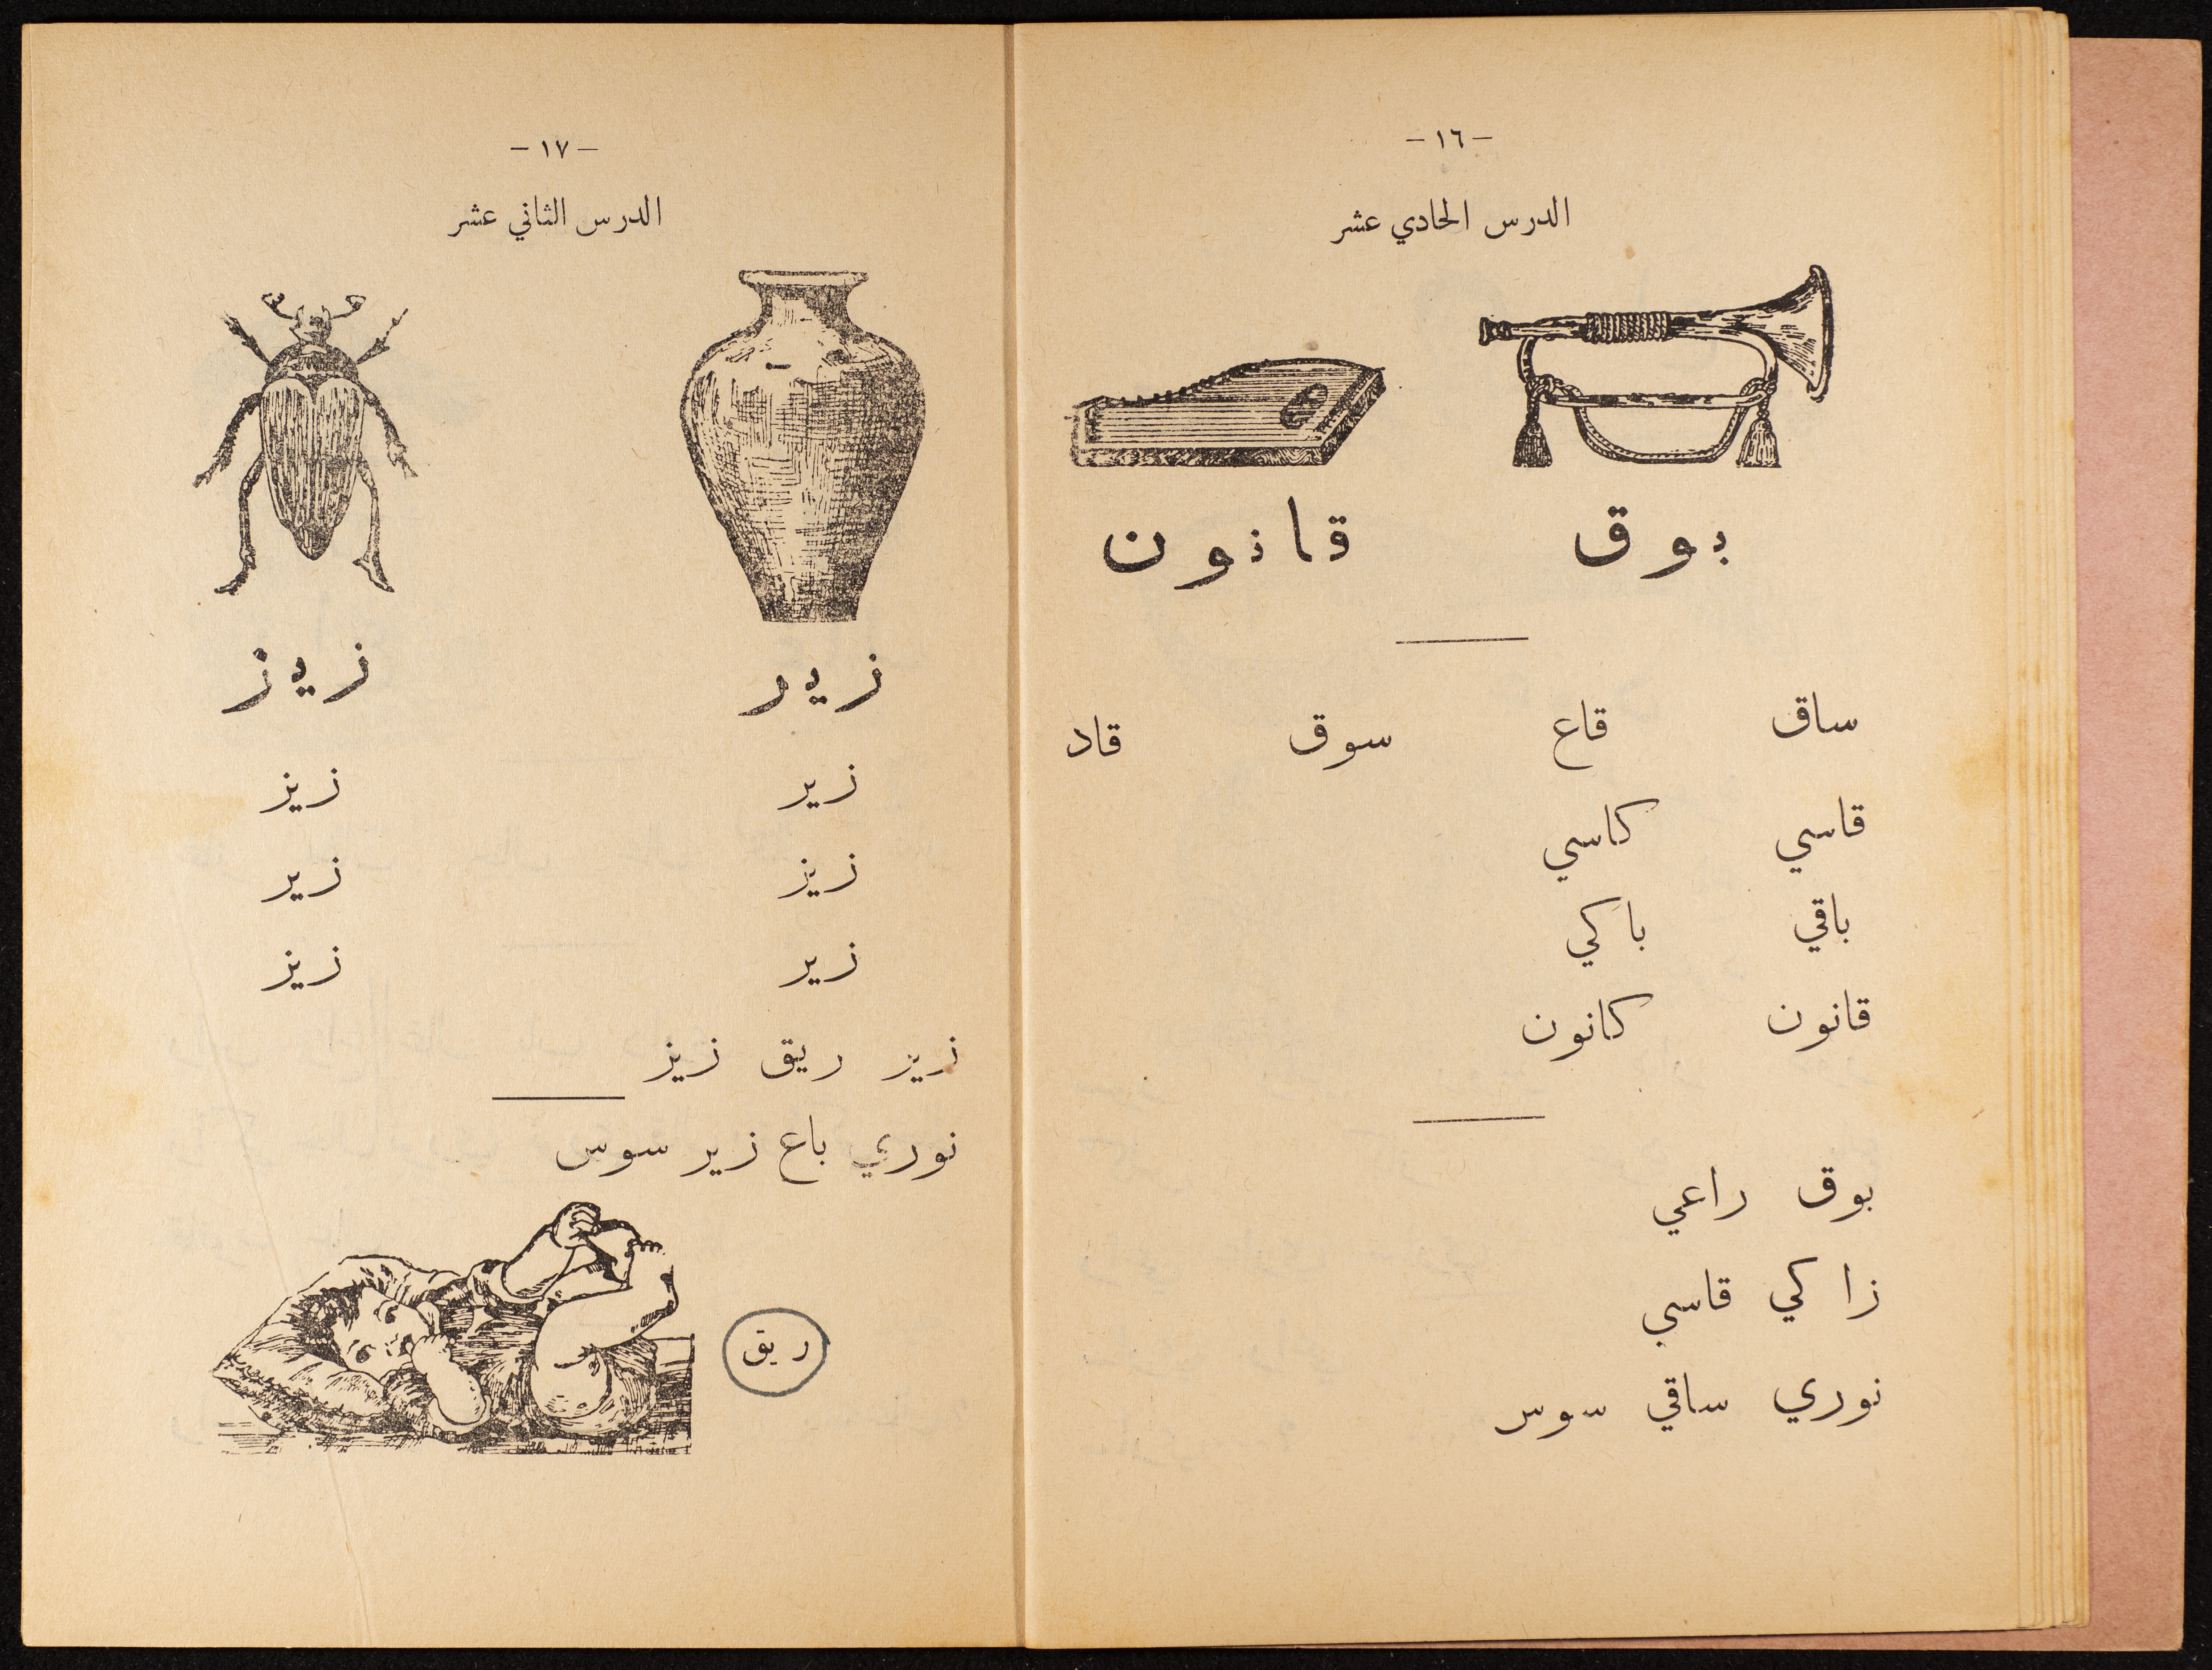 – ١٦ –
الدرس الحادي عشر
بوق قانون
ساق قاع سوق قاد
قاسي كاسي
باقي باكي
قانون كانون
بوق راعي
زاكي قاسي
نوري ساقي سوس
– ١٧ –
الدرس الثاني عشر
زير زيز
زير زيز
زيز زير
زير زيز
زير ريق زيز
نوري باع زير سوس
ريق